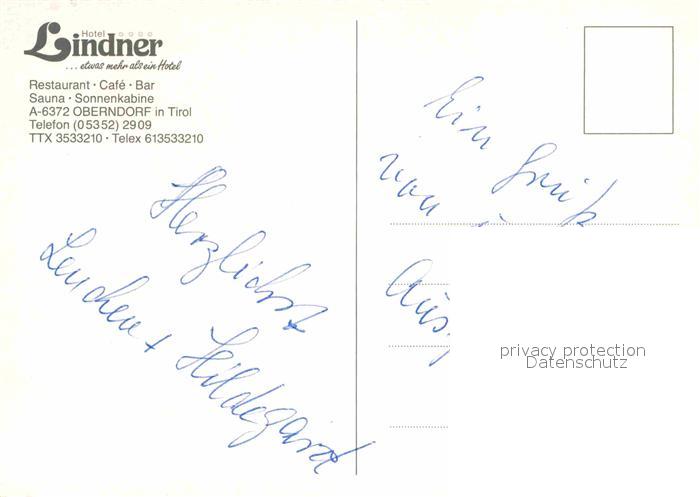 Hotel
Lindner
... etwas mehr als ein Hotel
Restaurant · Café · Bar
Sauna · Sonnenkabine
A-6372 OBERNDORF in Tirol
Telefon (05352) 2909
TTX 3533210 · Telex 613533210
Herzlichst
Lenchen + Hildegard
Ein Gruß
von
Aus
privacy protection
Datenschutz